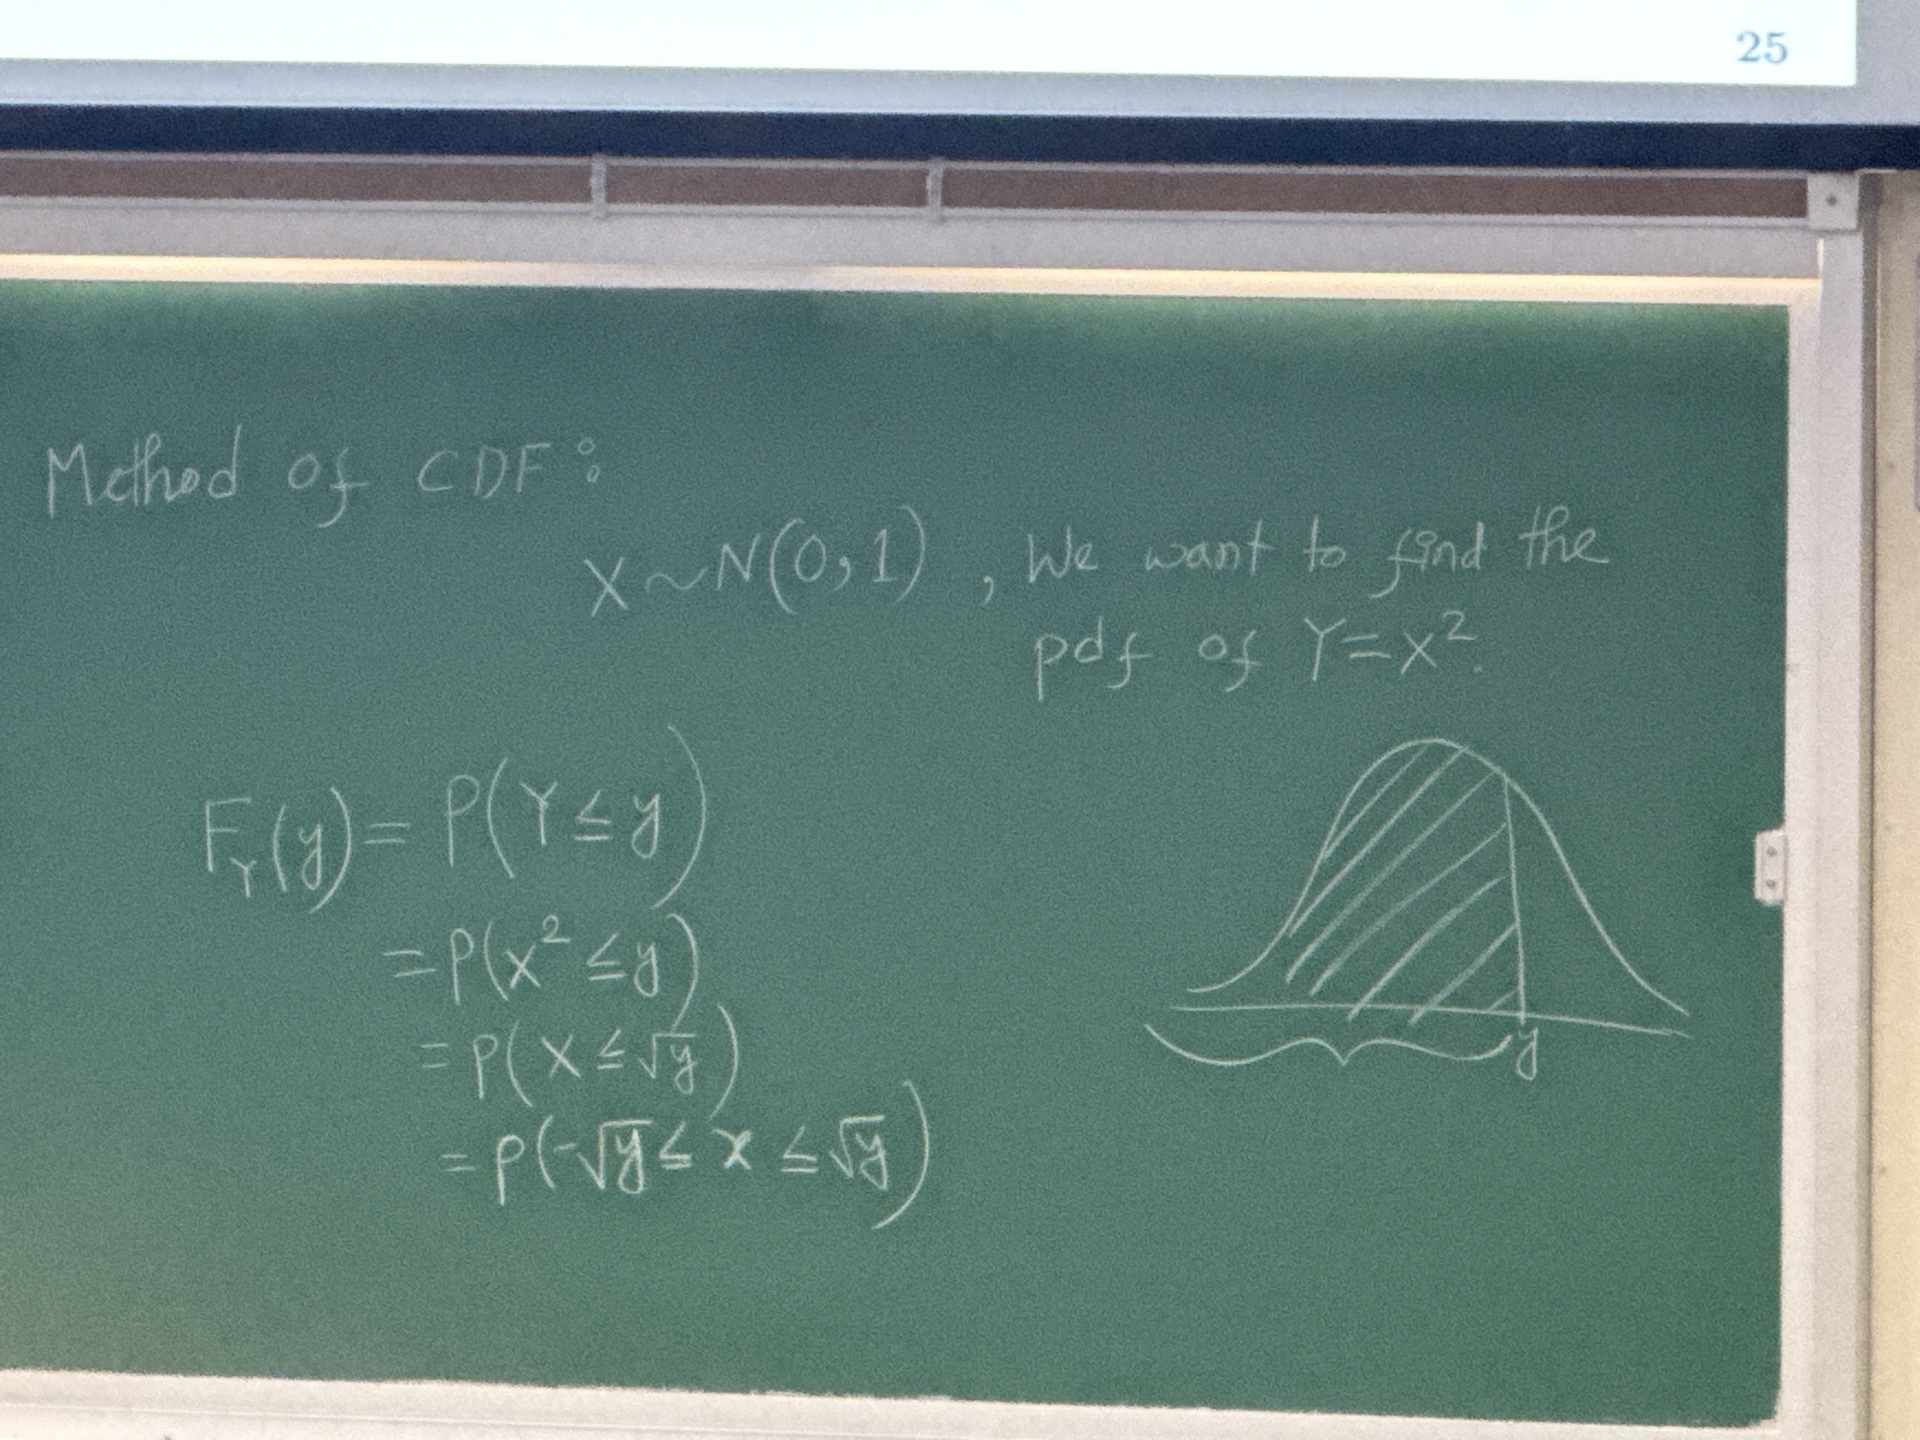 25
Method of CDF:
X ~ N(0,1) , We want to find the
pdf of Y = X².
F_Y(y) = P(Y ≤ y)
= P(X² ≤ y)
= P(X ≤ √y)
= P(-√y ≤ X ≤ √y)
y